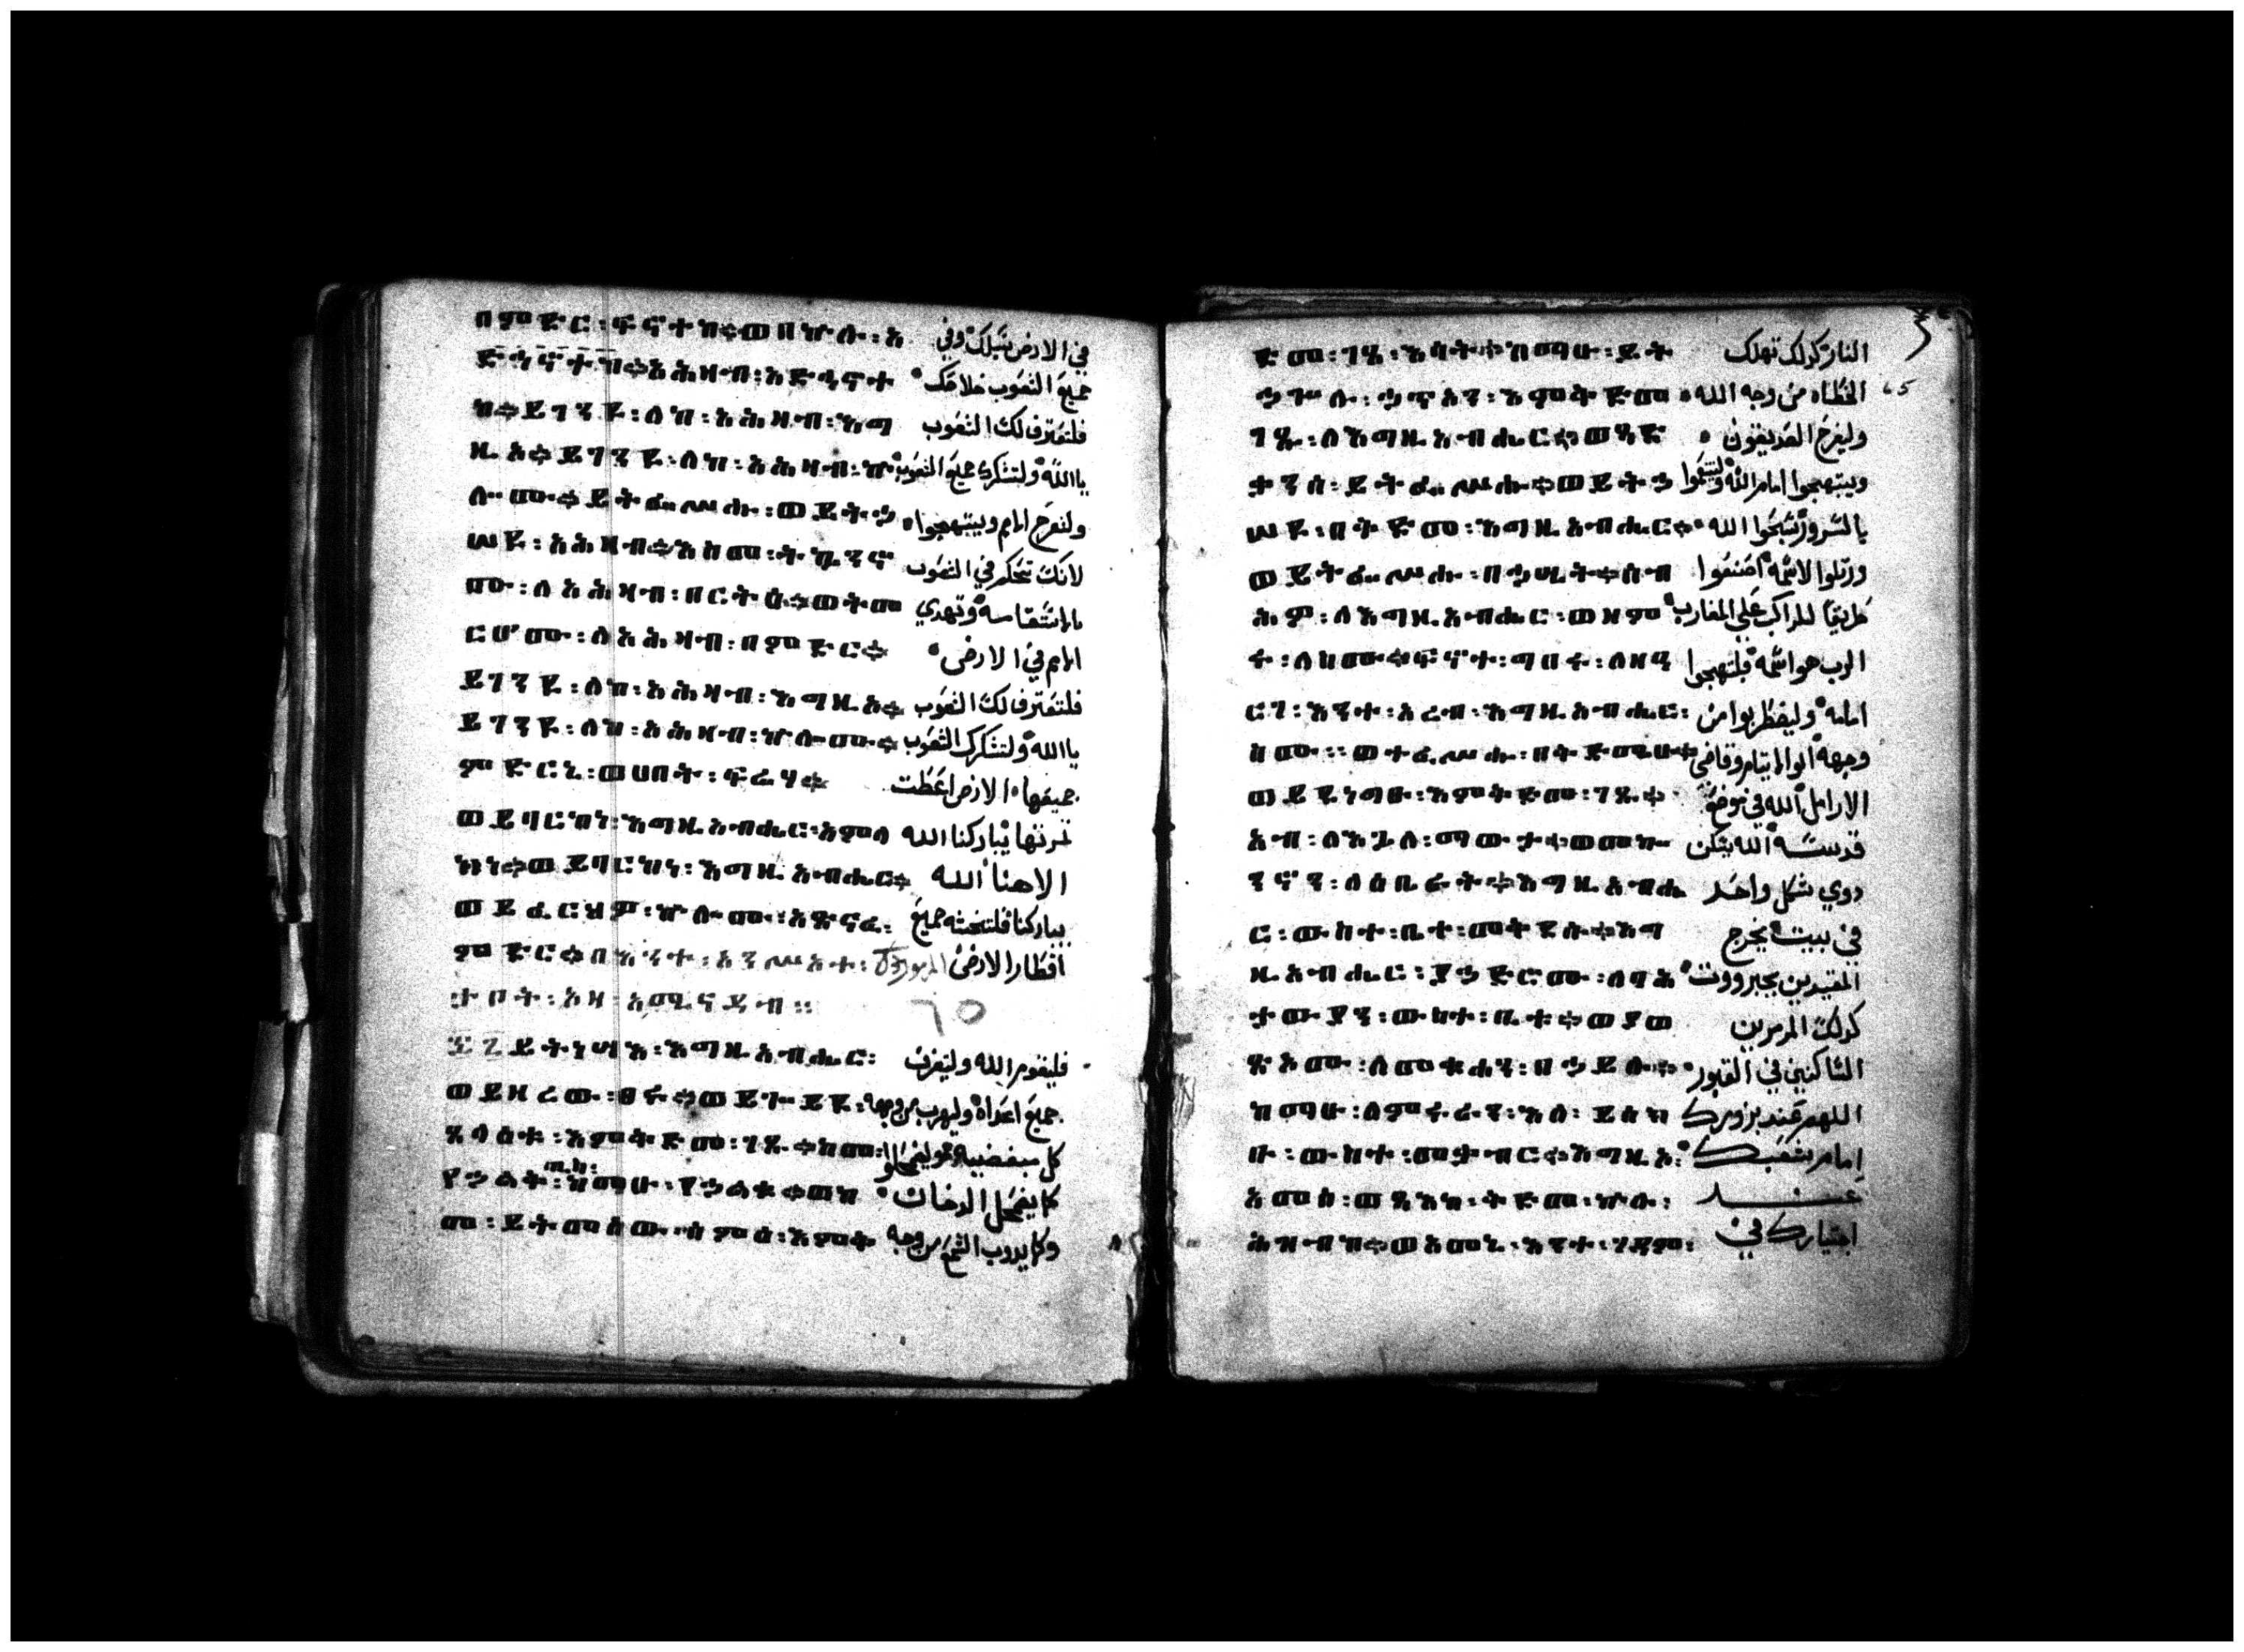 በምድር፡ ፍኖተከ።ወበኵሉ፡ አ في الارض سبلك وفي
ሕዛብ፡አድኅኖተ جميع الشعوب خلاصك
ከ።ይግነዩ፡ለከ፡አሕዛብ፡እግ فلتعترف لك الشعوب
ዚኦ።ይግነዩ፡ለከ፡አሕዛብ፡ኵ يا الله ولتشكرك جميع الشعوب
ሎሙ።ይትፌሥሑ፡ወይትኃ ولتفرح الامم ويبتهجوا
ሠዩ፡አሕዛብ።እስመ፡ትኴንኖ لانك تحكم في الشعوب
ሙ፡ለአሕዛብ፡በርትዕ።ወትመ بالاستقامه وتهدي
ርሖሙ፡ለአሕዛብ፡በምድር። الامم في الارض
ይግነዩ፡ለከ፡አሕዛብ፡እግዚኦ። فلتعترف لك الشعوب
ይግነዩ፡ለከ፡አሕዛብ፡ኵሎሙ። يا الله ولتشكرك الشعوب
ምድርኒ፡ወሀበት፡ፍሬሃ። جميعها الارض اعطت
ወይባርከነ፡እግዚአብሔር፡አምላ ثمرتها يباركنا الله
ክነ።ወይባርከነ፡እግዚአብሔር። الاهنا الله
ወይፈርህዎ፡ኵሎሙ፡አጽናፈ፡ يباركنا فلتخشه جميع
ምድር። اقطار الارض المزمور
٦٥
ይትነሣእ፡እግዚአብሔር፡ فليقوم الله وليتفرق
ወይዘረው፡ፀሩ።ወይጕየዩ፡ جميع اعداه وليهرب من وجهه
ጸላእቱ፡እምቅድመ፡ገጹ።ከመ፡ كل مبغضيه
የኃልቅ፡ጢስ፡ከማሁ፡የኃልቁ።ወከ كما يضمحل الدخان
መ፡ይትመሰው፡ሰምዕ፡እምቅ وكما يدوب الشمع من وجه
ድመ፡ገጸ፡እሳት።ከማሁ፡ይት النار كدلك تهلك
ኃጐሉ፡ኃጥአን፡እምቅድመ الخطاه من وجه الله
ገጹ፡ለእግዚአብሔር።ወጻድ وليفرح الصديقون
ቃንሰ፡ይትፌሥሑ።ወይትኃ ويبتهجوا امام الله
ሠዩ፡በቅድመ፡እግዚአብሔር። بالسرور سبحوا الله
ወይትፌሥሑ፡በኃሤት።ሰብ ورتلوا لاسمه اصنعوا
ሕዎ፡ለእግዚአብሔር፡ወዘም طريقا للراكب على المغارب
ሩ፡ለስሙ።ፍኖተ፡ግበሩ፡ለዘዓ الرب هو اسمه فابتهجوا
ርገ፡እንተ፡ዐረብ፡እግዚአብሔር፡ امامه وليضطربوا من
ስሙ፡፡ወተፈሥሑ፡በቅድሜሁ። وجهه ابو الايتام وقاضي
ወይደነግፁ፡እምቅድመ፡ገጹ። الارامل الله في موضع
አብ፡ለእጓለ፡ማውታ።ወመኰ قدسه الله يسكن
ንን፡ለዕቤራት።እግዚአብሔ دوي شكل واحد
ር፡ውስተ፡ቤተ፡መቅደሱ።እግ في بيت يخرج
ዚአብሔር፡ያኃድሮሙ፡ለባሕ المقيدين بجبروت
ታውያን፡ውስተ፡ቤት።ወያወ كدلك المرمرين
ጽኦሙ፡ለሙቁሓን፡በኃይሉ። الساكنين في القبور
ከማሁ፡ለምሩራን፡እለ፡ይነብ اللهم عند بزورك
ሩ፡ውስተ፡መቃብር።እግዚኦ፡ امام شعبك
አመ፡ወፃእከ፡ቅድመ፡ኵሉ፡ عند
ሕዝብከ።ወአመኒ፡እንተ፡ገዳም፡ اجتيازك في